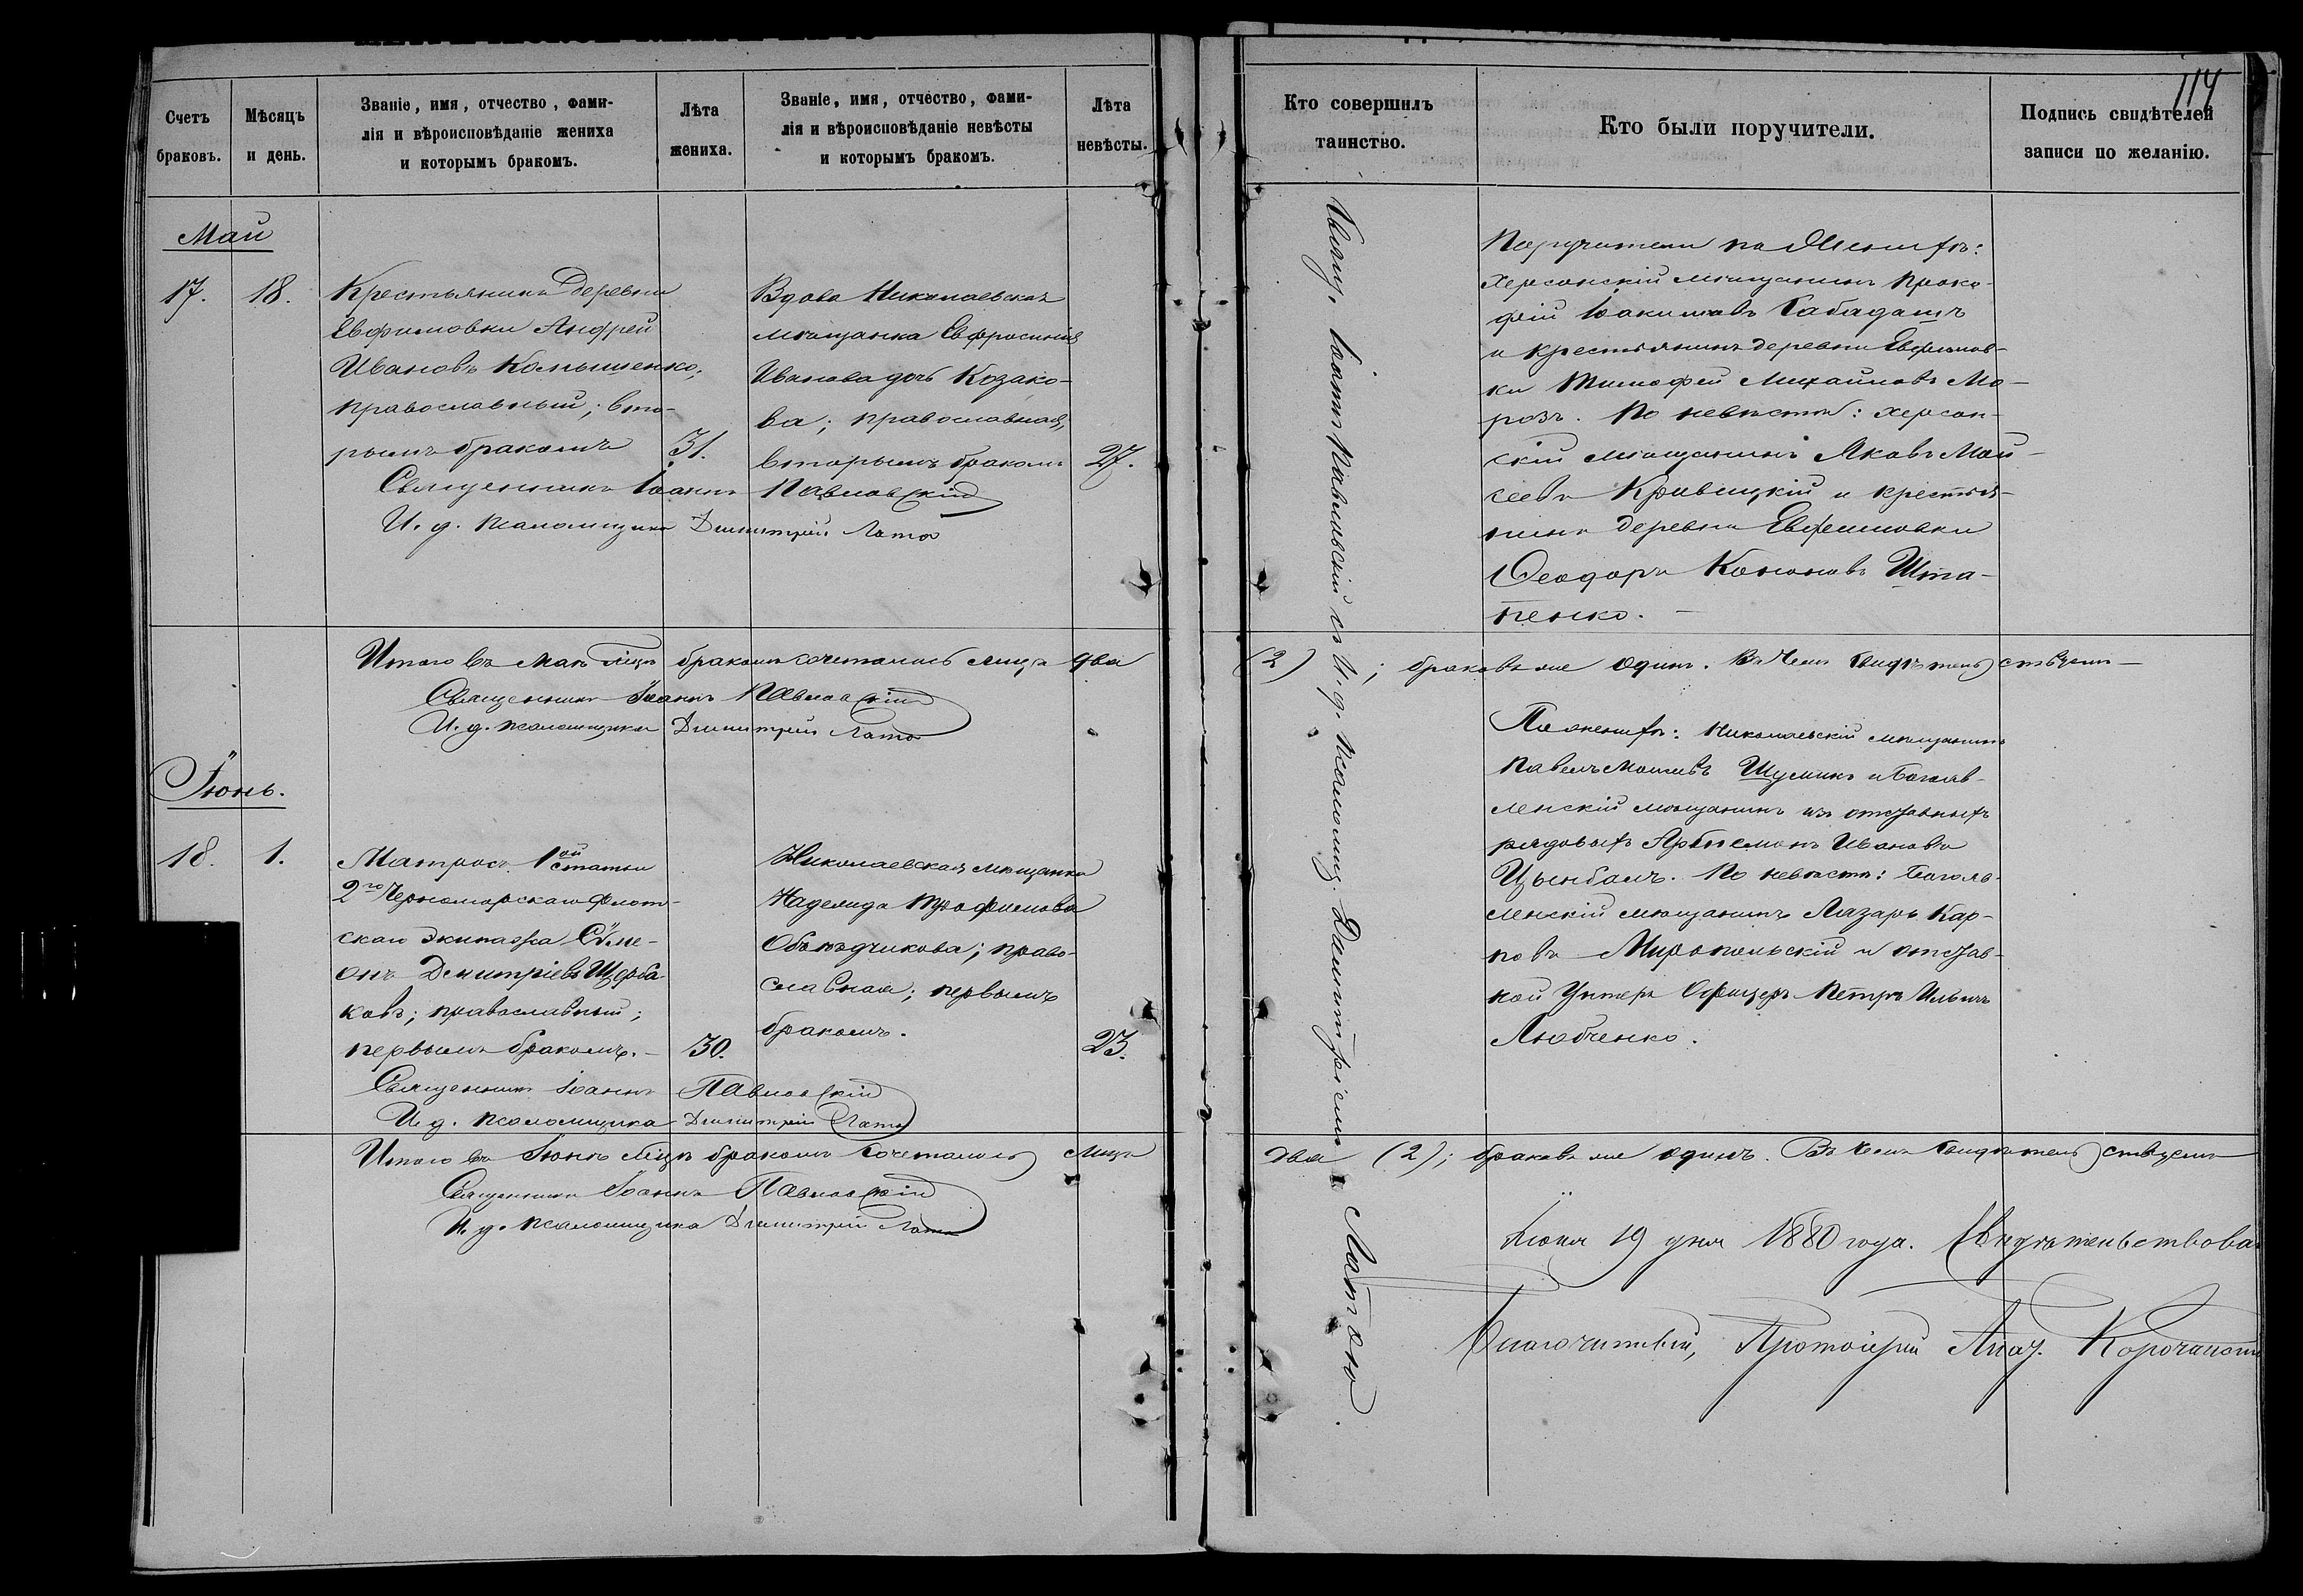 114
Счетъ браковъ.
Мѣсяцъ и день.
Званіе, имя, отчество, фами-
лія и вѣроисповѣданіе жениха
и которымъ бракомъ.
Лѣта жениха.
Званіе, имя, отчество, фами-
лія и вѣроисповѣданіе невѣсты
и которымъ бракомъ.
Лѣта невѣсты.
Кто совершилъ таинство.
Кто были поручители.
Подпись свидѣтелей записи по желанію.
Май
17.
18.
Крестьянинъ деревни
Евфимовки Андрей
Ивановъ Комышенко;
православный; вто-
рымъ бракомъ
31.
Вдова Николаевская
мѣщанка Евфросинія
Иванова дочь Козако-
ва; православная,
вторымъ бракомъ
27.
Священникъ Іоаннъ Павловскій
И. д. псаломщика Димитрій Лато
Поручители по женихѣ:
Херсонскій мѣщанинъ Проко-
фій Іоакимовъ Бабадашъ
и крестьянинъ деревни Евфимов-
ки Тимофей Михайловъ Мо-
розъ. По невѣстѣ: херсон-
скій мѣщанинъ Яковъ Мой-
сеевъ Кривицкій и крестья-
нинъ деревни Евфимовки
Ѳеодоръ Кононовъ Шта-
пенко.
Итого въ Маѣ мцѣ бракомъ сочетались лица два
(2); браковъ же одинъ. Въ чемъ свидѣтельствуемъ
Священникъ Іоаннъ Павловскій
И. д. псаломщика Димитрій Лато
Іюнь.
18.
1.
Матросъ 1ой статьи
2го Черноморскаго флот-
скаго экипажа Симе-
онъ Димитріевъ Щерба-
ковъ; православный;
первымъ бракомъ.
30.
Николаевская мѣщанка
Надежда Трофимова
Объѣздчикова; право-
славная; первымъ
бракомъ.
23.
Священникъ Іоаннъ Павловскій
И. д. псаломщика Димитрій Лато
По женихѣ: Николаевскій мѣщанинъ
Павелъ Шулинъ и Богояв-
ленскій мѣщанинъ изъ отставныхъ
рядовыхъ Ивановъ
Цымбалъ. По невѣстѣ: Богояв-
ленскій мѣщанинъ Лазарь Кар-
повъ Миропольскій и отстав-
ной Унтеръ Офицеръ Петръ Ильинъ
Любченко.
Итого въ Іюнѣ мцѣ бракомъ сочетались лица
два (2); браковъ же одинъ. Въ чемъ свидѣтельствуемъ
Священникъ Іоаннъ Павловскій
И. д. псаломщика Димитрій Лато
Іоаннъ Павловскій съ И. д. псаломщ. Димитріемъ Латою.
Іюня 19 дня 1880 года. Свидѣтельствова
Благочинный, Протоіерей